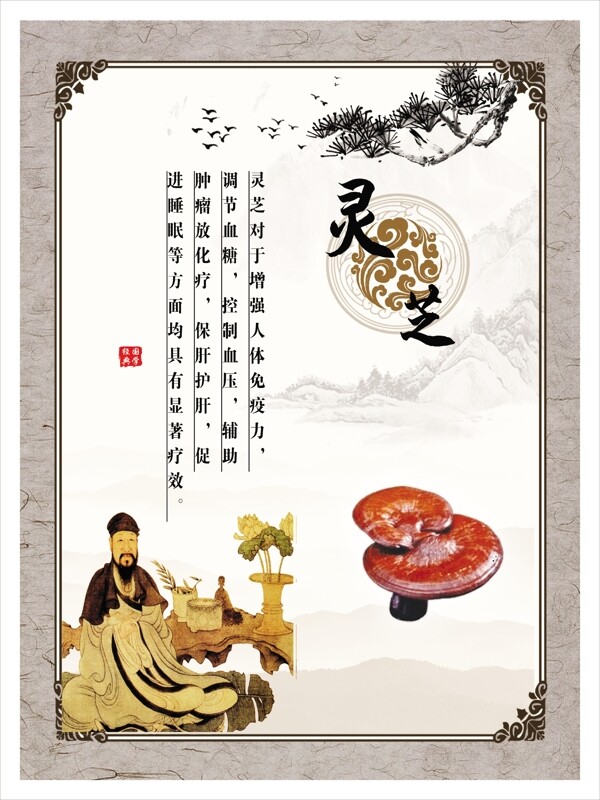 灵芝
灵芝对于增强人体免疫力，
调节血糖，控制血压，辅助
肿瘤放化疗，保肝护肝，促
进睡眠等方面均具有显著疗效。
国学
经典